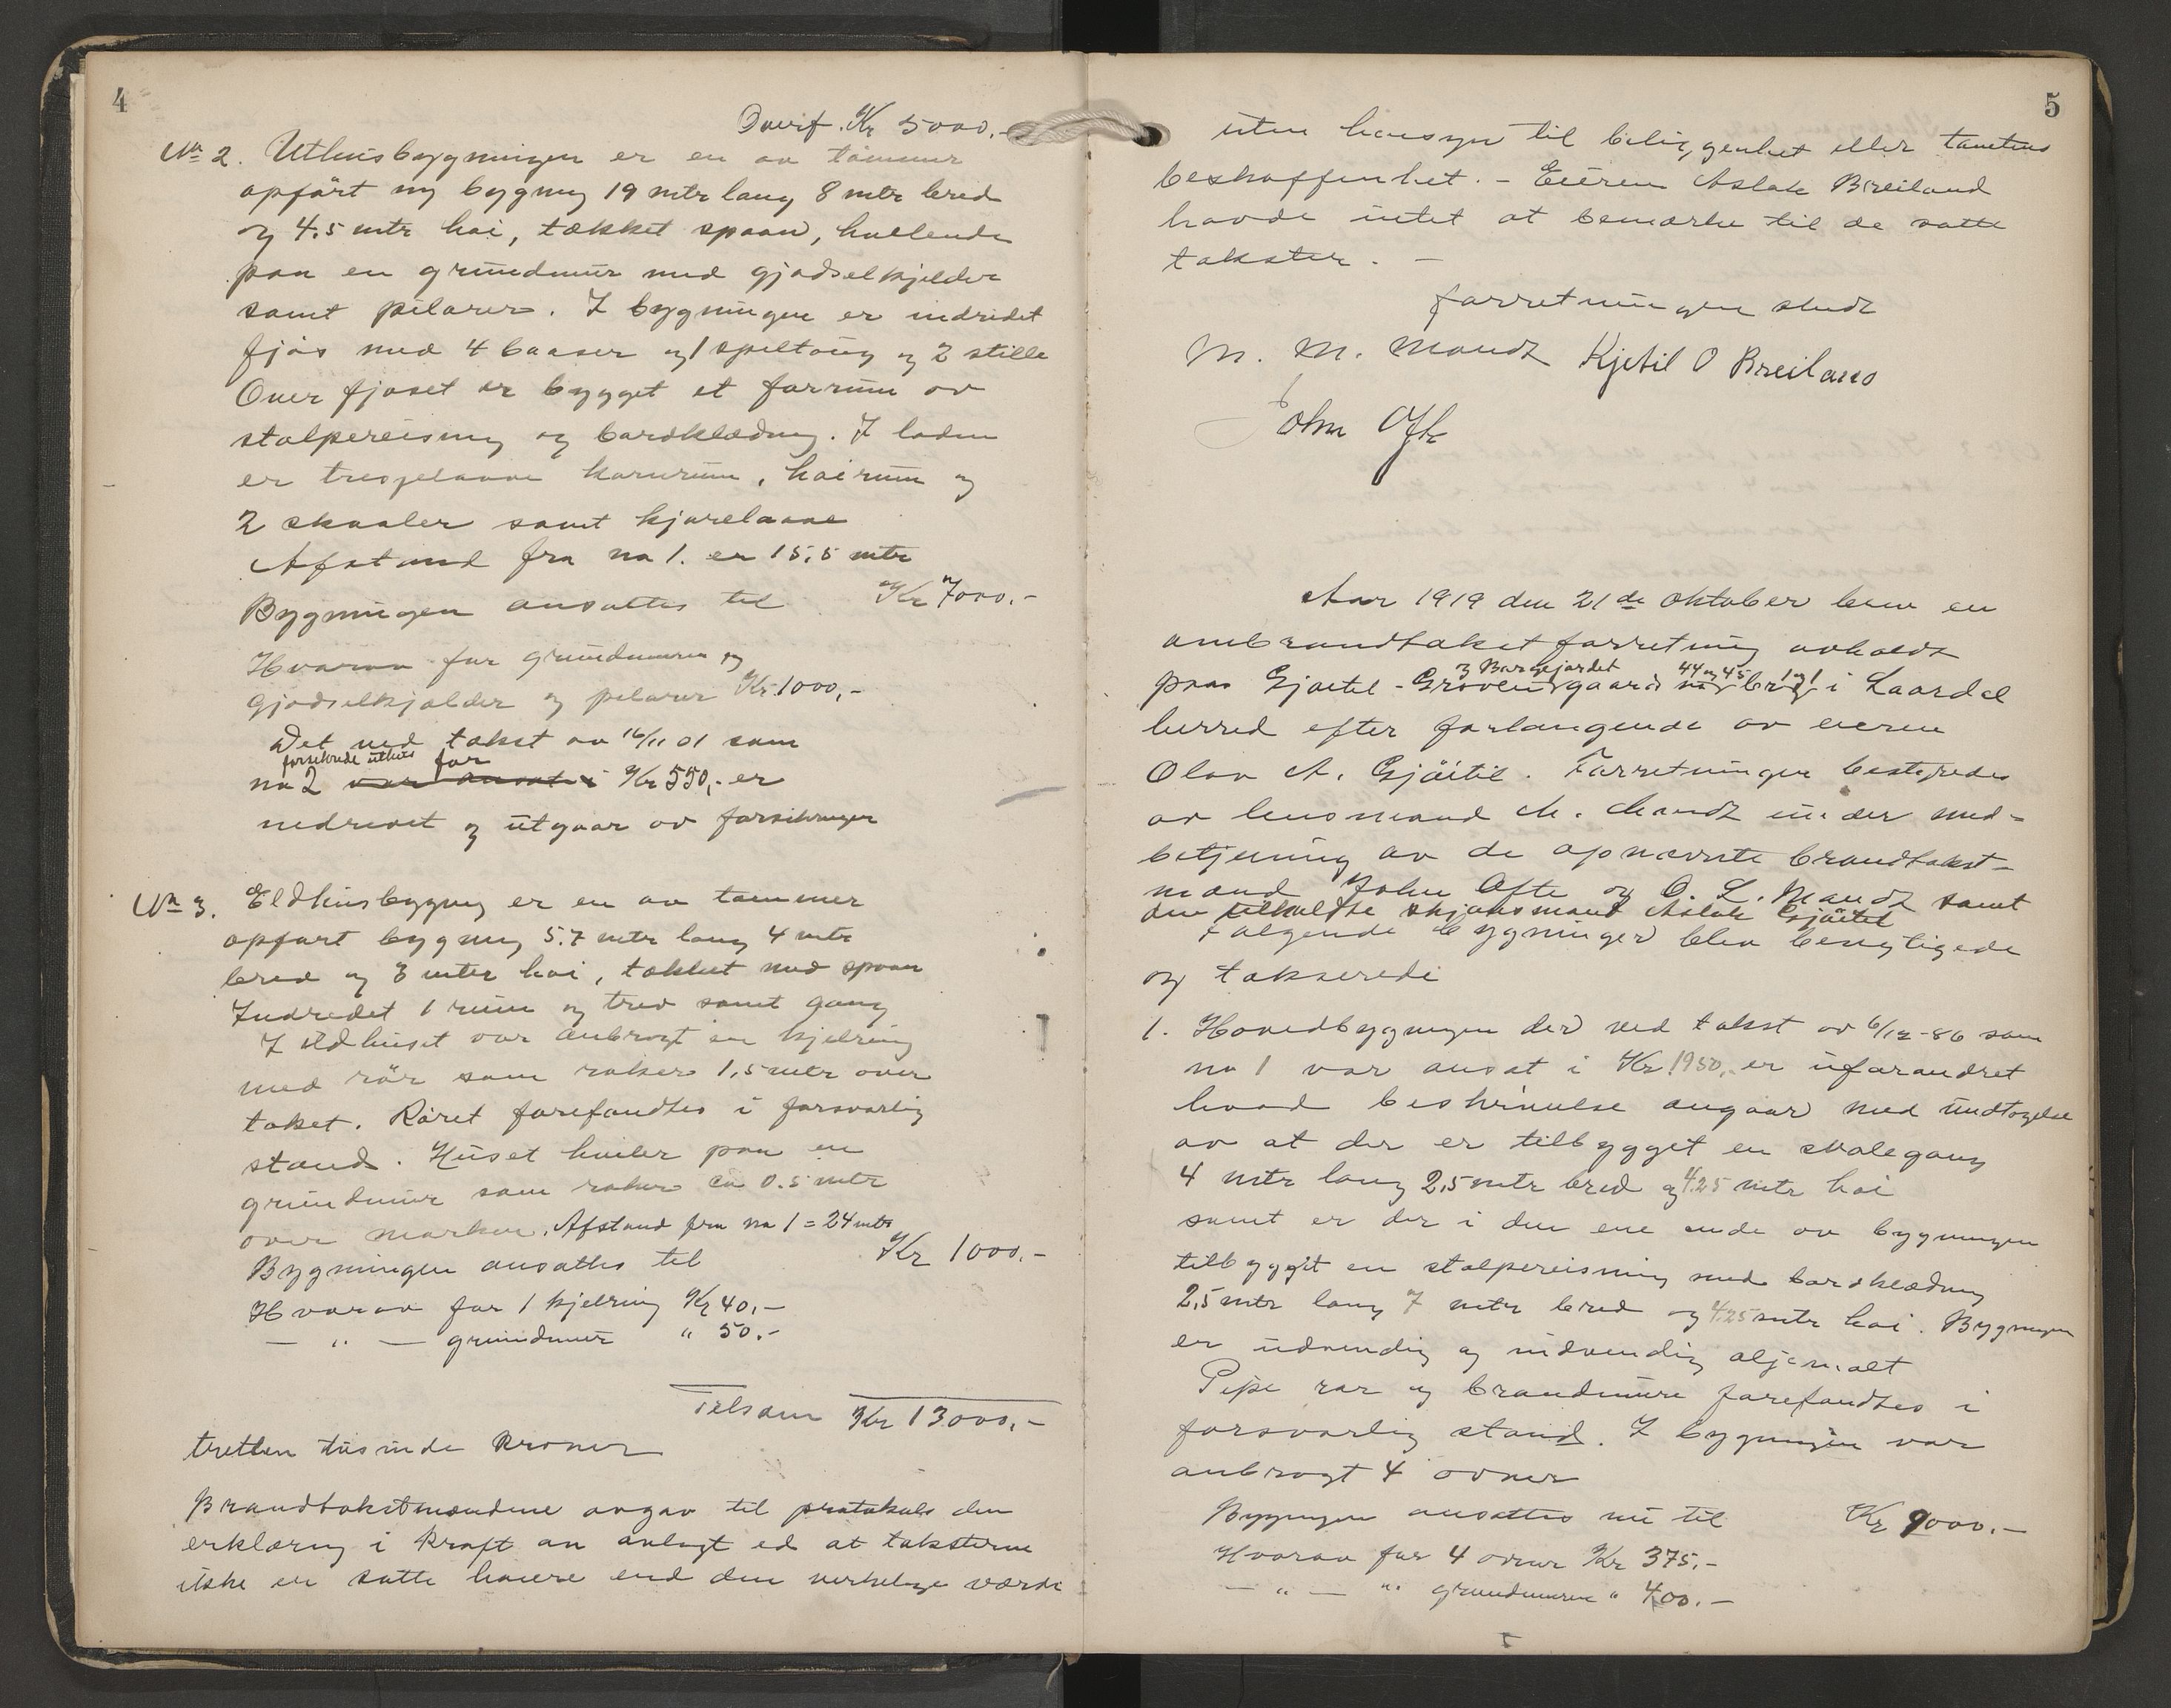 4
Overf. Kr 5000.-
No 2. Uthusbygningen er en av tømmer
opført ny bygning 19 mtr lang 8 mtr bred
og 4.5 mtr høi, tækket spaan, hvilende
paa en grundmur med gjødselkjelder
samt pilarer. I bygningen er indredet
fjøs med 4 baaser og 1 speltaug og 2 stille
Over fjøset er bygget et forrum av
stolpereisning og bordklædning. I loden
er treskjelaave kornrum, høirum og
2 skaaler samt kjørelaave
Afstand fra no 1. er 15,5 mtr
Bygningen ansattes til Kr 7000.-
Hvorav for grundmuren og
gjødselkjælder og pilarer Kr 1000,-
Det ved takst av 16/11 01 som
forsikrede uthus for
no 2 var ansat i Kr 550,- er
nedrevet og utgaar av forsikringen
No 3. Eldhusbygning er en av tømmer
opført bygning 5.7 mtr lang 4 mtr
bred og 3 mter høi, tækket med spaan
Indredet 1 rum og trev samt gang
I eldhuset var anbragt en kjelring
med rør som raker 1,5 mtr over
taket. Røret forefandtes i forsvarlig
stand. Huset hviler paa en
grundmur som raker ca 0.5 mtr
over marken. Afstand fra no 1 = 24 mtr
Bygningen ansattes til Kr 1000.-
Hvorav for 1 kjelring Kr 40,-
— " — grundmur " 50.-
Tilsam Kr 13000,-
tretten tusinde kroner
Brandtakstmændene avgav til protokols den
erklæring i kraft av avlagt ed at taksterne
ikke er satte høiere end den virkelige værdi
5
uten hensyn til beliggenhet eller tomtens
beskaffenhet. - Eieren Aslak Breiland
havde intet at bemærke til de satte
takster. -
Forretningen slut
M. M. Mandt Kjetil O Breiland
John Ofte
Aar 1919 den 21de oktober blev en
ombrandtakstforretning avholdt
3 Bergsjordet 44 og 45 1 og 1
paa Gjøitil - Groven gaard no br i Laardal
herred efter forlangende av eieren
Olav A. Gjøitil. Forretningen bestyredes
av lensmand M. Mandt under med-
betjening av de opnævnte brandtakst-
mænd John Ofte og O. L. Mandt samt
den tilkaldte skjønsmand Aslak Gjøitil
Følgende bygninger blev besigtigede
og takserede
1. Hovedbygningen der ved takst av 6/12-86 som
no 1 var ansat i Kr. 1950, er uforandret
hvad beskrivelse angaar med undtagelse
av at der er tilbygget en svalegang
4 mtr lang 2,5 mtr bred og 4.25 mtr høi
samt er der i den ene ende av bygningen
tilbygget en stolpereisning med bordklædning
2,5 mtr lang 7 mtr bred og 4.25 mtr høi. Bygningen
er udvendig og indvendig oljemalt
Pipe rør og brandmure forefandtes i
forsvarlig stand. I bygningen var
anbragt 4 ovner
Bygningen ansattes nu til Kr 9000.-
Hvorav for 4 ovner Kr 375.-
— " — " grundmuren " 400.-